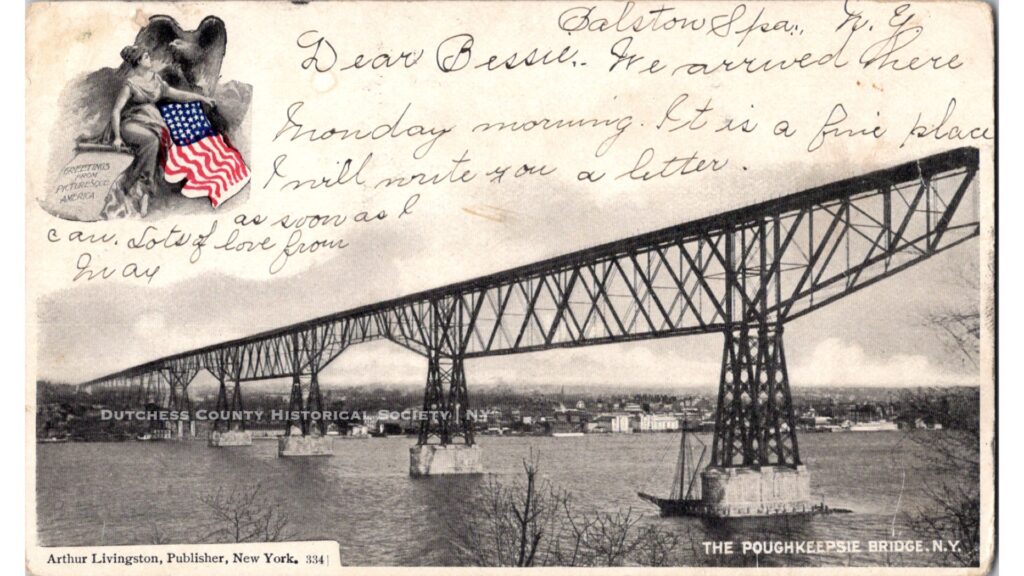 Balston Spa., N. Y
Dear Bessie.. We arrived here
Monday morning. It is a fine place
I will write you a letter.
as soon as I
can. Lots of love from
May
GREETINGS
FROM
PICTURESQUE
AMERICA
DUTCHESS COUNTY HISTORICAL SOCIETY | NY
Arthur Livingston, Publisher, New York. 334
THE POUGHKEEPSIE BRIDGE. N.Y.